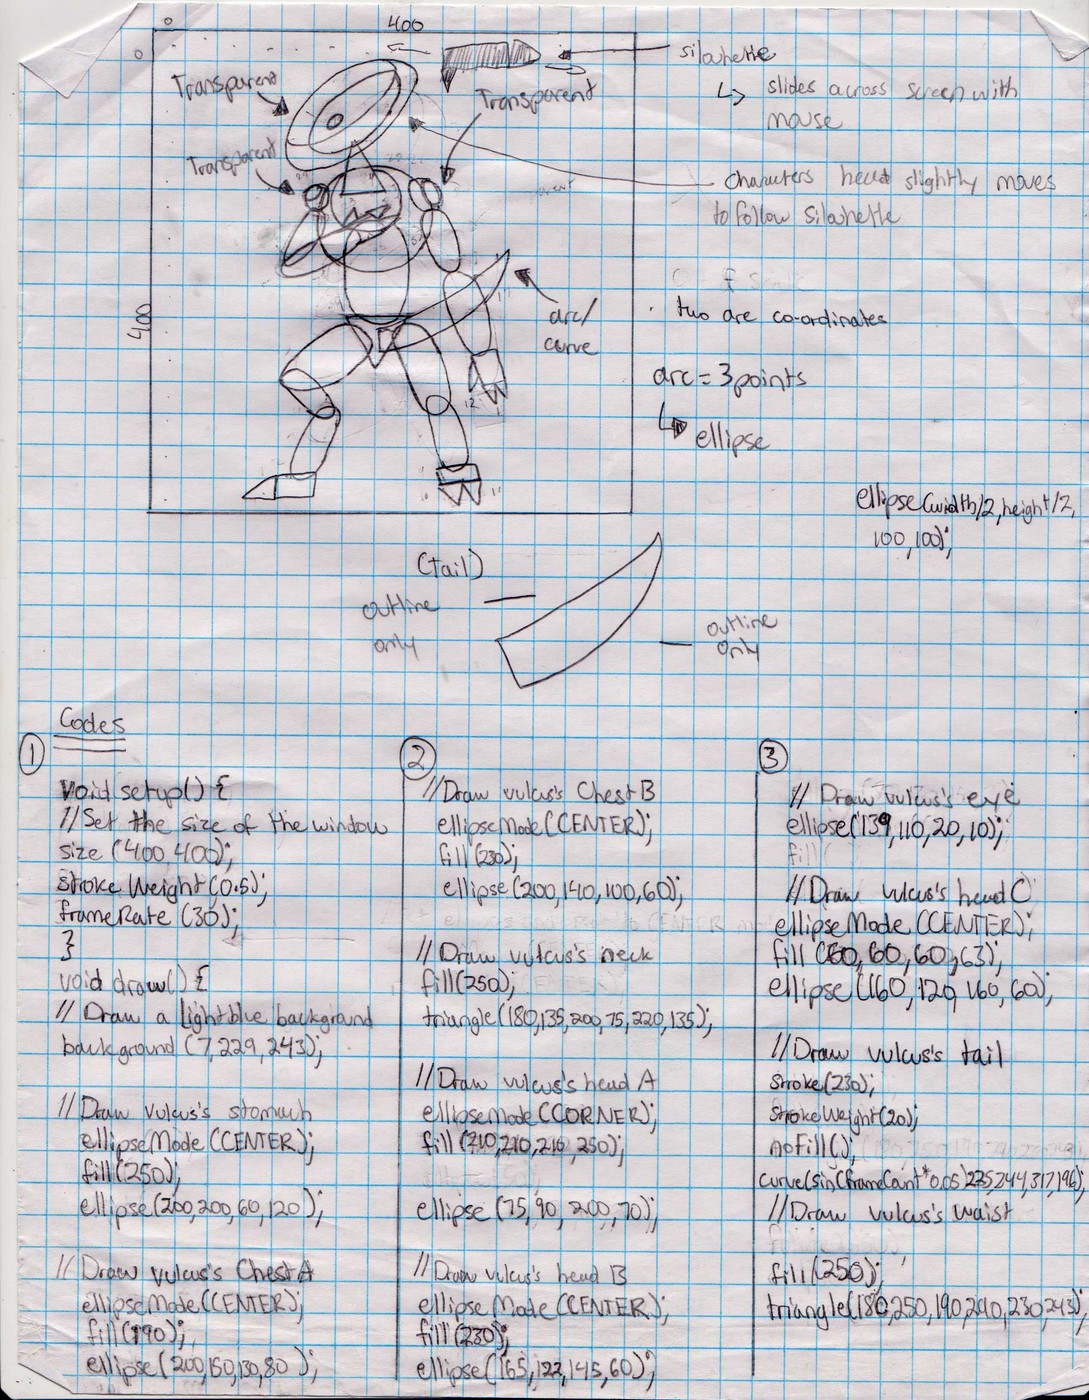 400
silouhette
↳ slides across screen with
mouse
Transparent
Transparent
Transparent
characters head slightly moves
to follow silouhette
400
arc/
curve
two arc co-ordinates
arc = 3 points
↳ ellipse
ellipse(width/2, height/2,
100,100);
(tail)
outline
only
outline
only
Codes
①
void setup() {
//Set the size of the window
size (400,400);
stroke Weight (0.5);
frameRate (30);
}
void draw() {
// Draw a light blue background
background (7,229,243);
//Draw vulcus's stomach
ellipseMode (CENTER);
fill(250);
ellipse(200,200,60,120);
//Draw vulcus's Chest A
ellipseMode (CENTER);
fill(190);
ellipse(200,150,130,80);
②
//Draw vulcus's Chest B
ellipseMode (CENTER);
fill(230);
ellipse (200,140,100,60);
//Draw vulcus's neck
fill(250);
triangle(180,135,200,75,220,135);
//Draw vulcus's head A
ellipseMode (CORNER);
fill (210,210,210,250);
ellipse (75,90, 200,70);
//Draw vulcus's head B
ellipse Mode (CENTER);
fill(230);
ellipse(165,122,145,60);
③
// Draw vulcus's eye
ellipse(139,110,20,10);
//Draw vulcus's head C
ellipseMode (CENTER);
fill (60,60,60,63);
ellipse (160,120,160,60);
//Draw vulcus's tail
stroke(230);
strokeWeight(20);
noFill();
curve(sin(frameCount*0.05)225,244,317,196);
//Draw vulcus's waist
fill(250);
triangle(180,250,190,240,230,243);